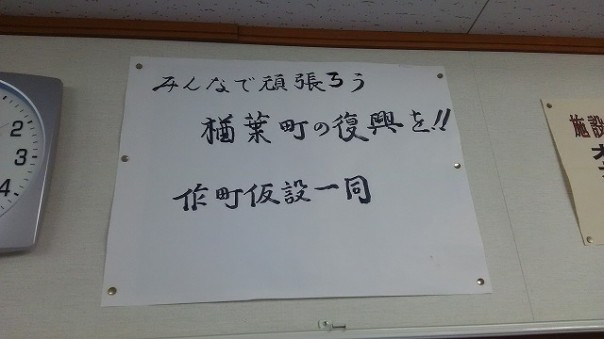 みんなで頑張ろう
楢葉町の復興を!!
作町仮設一同
2
3
4
施設